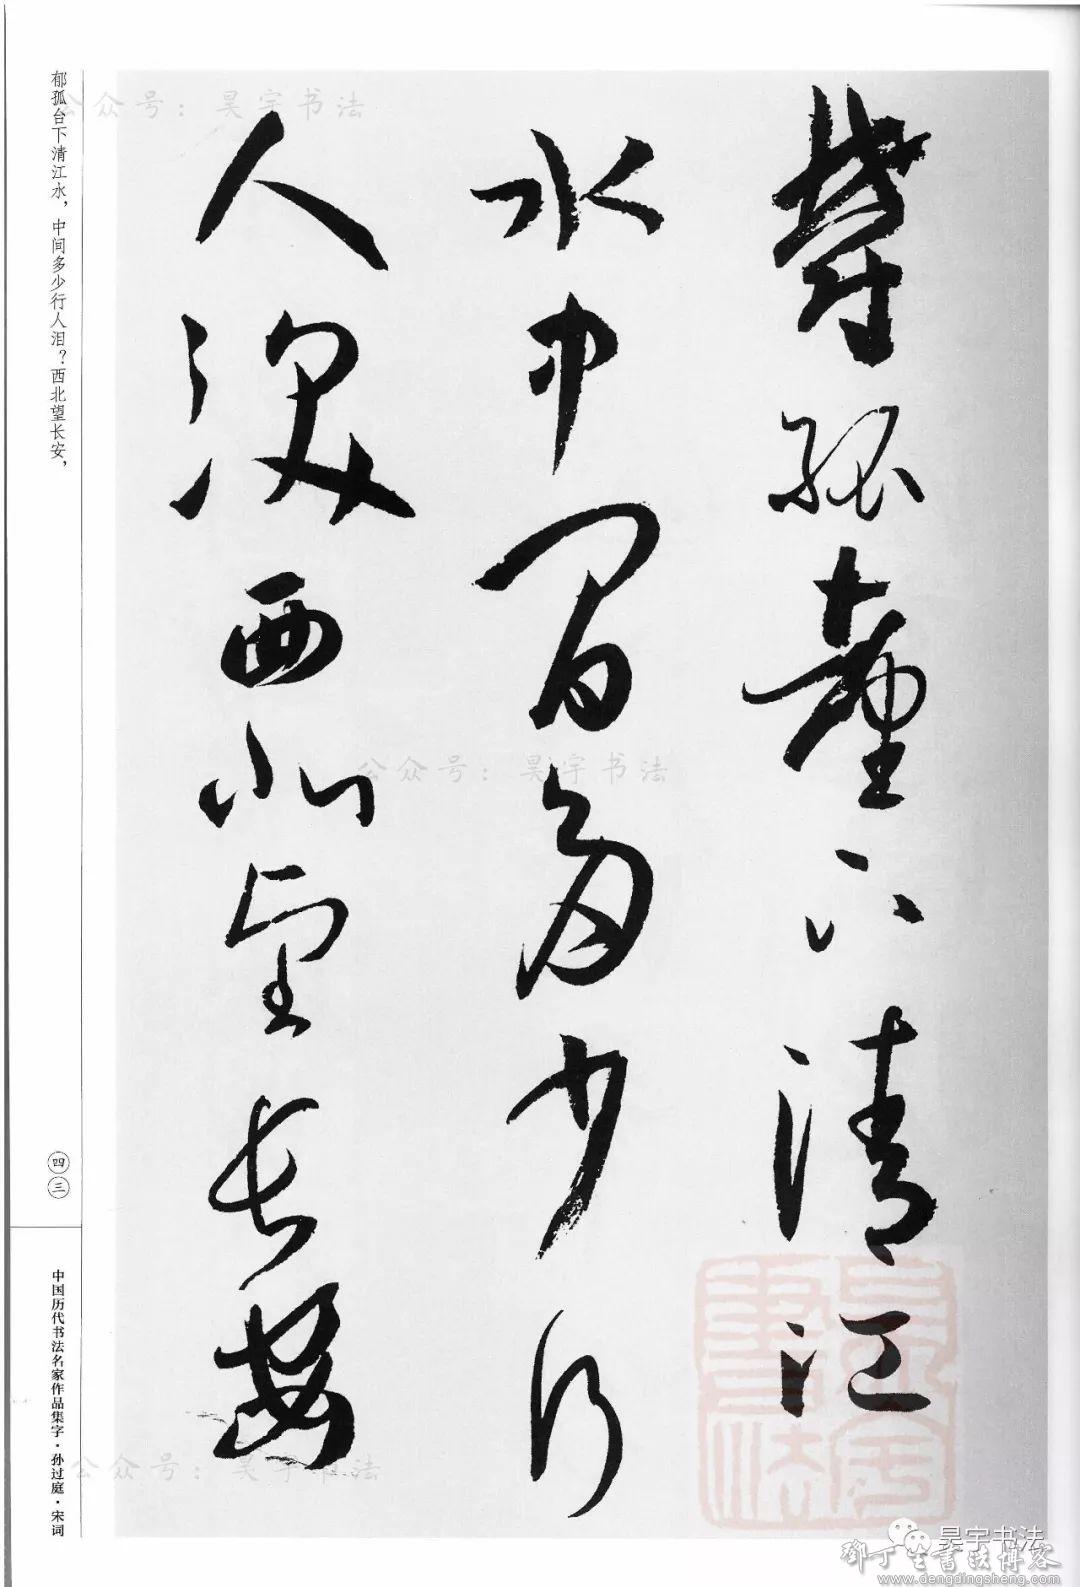 鬱孤臺下清江
水中間多少行
人淚西北望長安
郁孤台下清江水，中间多少行人泪？西北望长安，
四三
中国历代书法名家作品集字·孙过庭·宋词
公众号：昊宇书法
公众号：昊宇书法
公众号：昊宇书法
昊宇书法
昊宇书法
鄧丁生書法博客
www.dengdingsheng.com